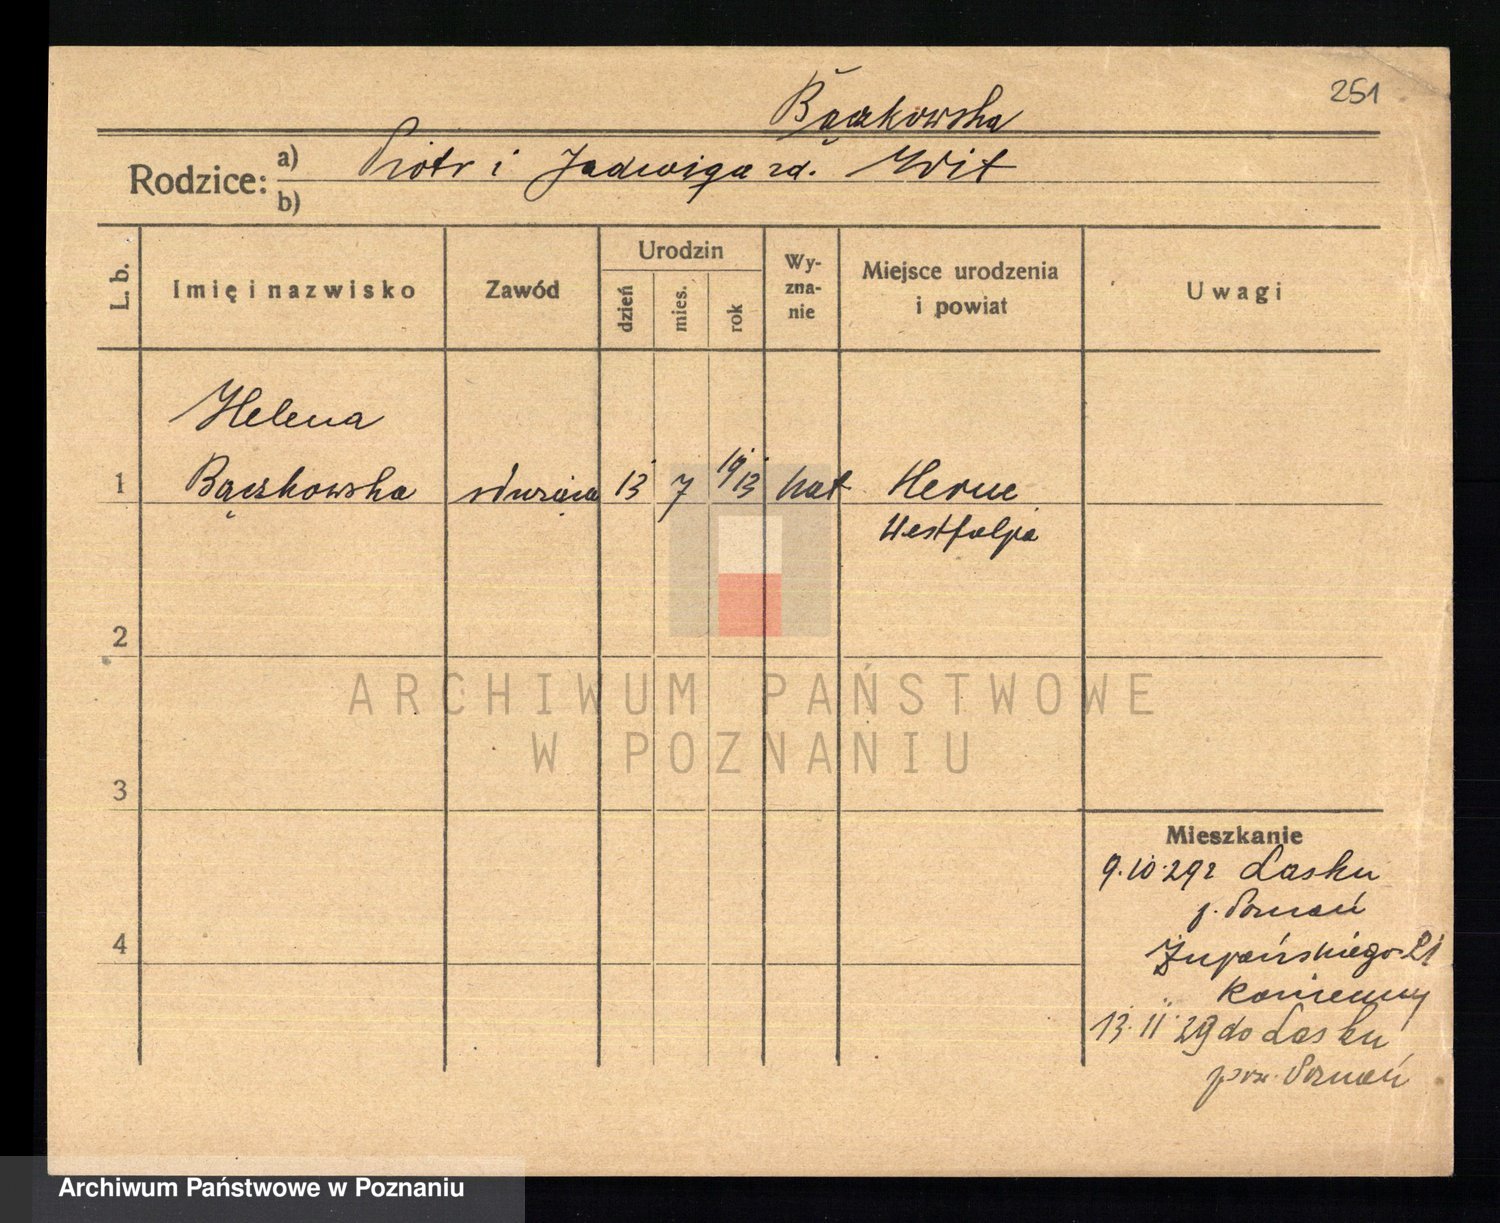 251
Bączkowska
Rodzice: a) Piotr i Jadwiga zd. Wit
b)
L. b.
Imię i nazwisko
Zawód
Urodzin
dzień
mies.
rok
Wy-
zna-
nie
Miejsce urodzenia
i powiat
Uwagi
Helena
1 Bączkowska służąca 13 7 1913 kat Herne
Westfalja
2
3
4
ARCHIWUM PAŃSTWOWE
W POZNANIU
Mieszkanie
9.10.29r Lasku
p. Poznań
Żupańskiego 21
13.11.29 do Lasku
pow. Poznań
Archiwum Państwowe w Poznaniu